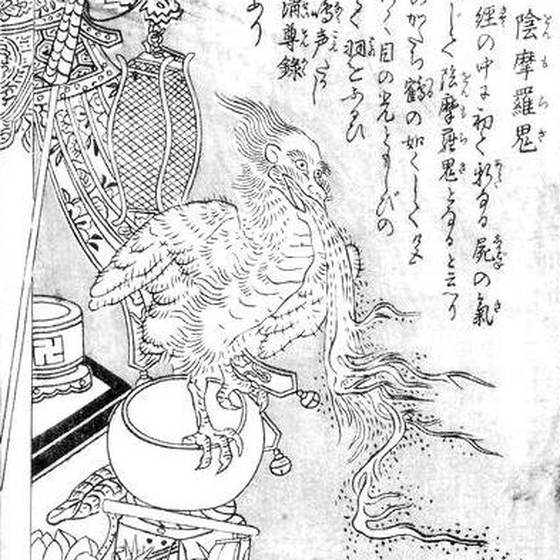 陰摩羅鬼
經の中に初て新なる屍の氣
じて陰摩羅鬼となると云へり
かたち鶴の如くして色
く目の光ともしびの
く羽をふるひ
鳴声たかし
清尊録
あり